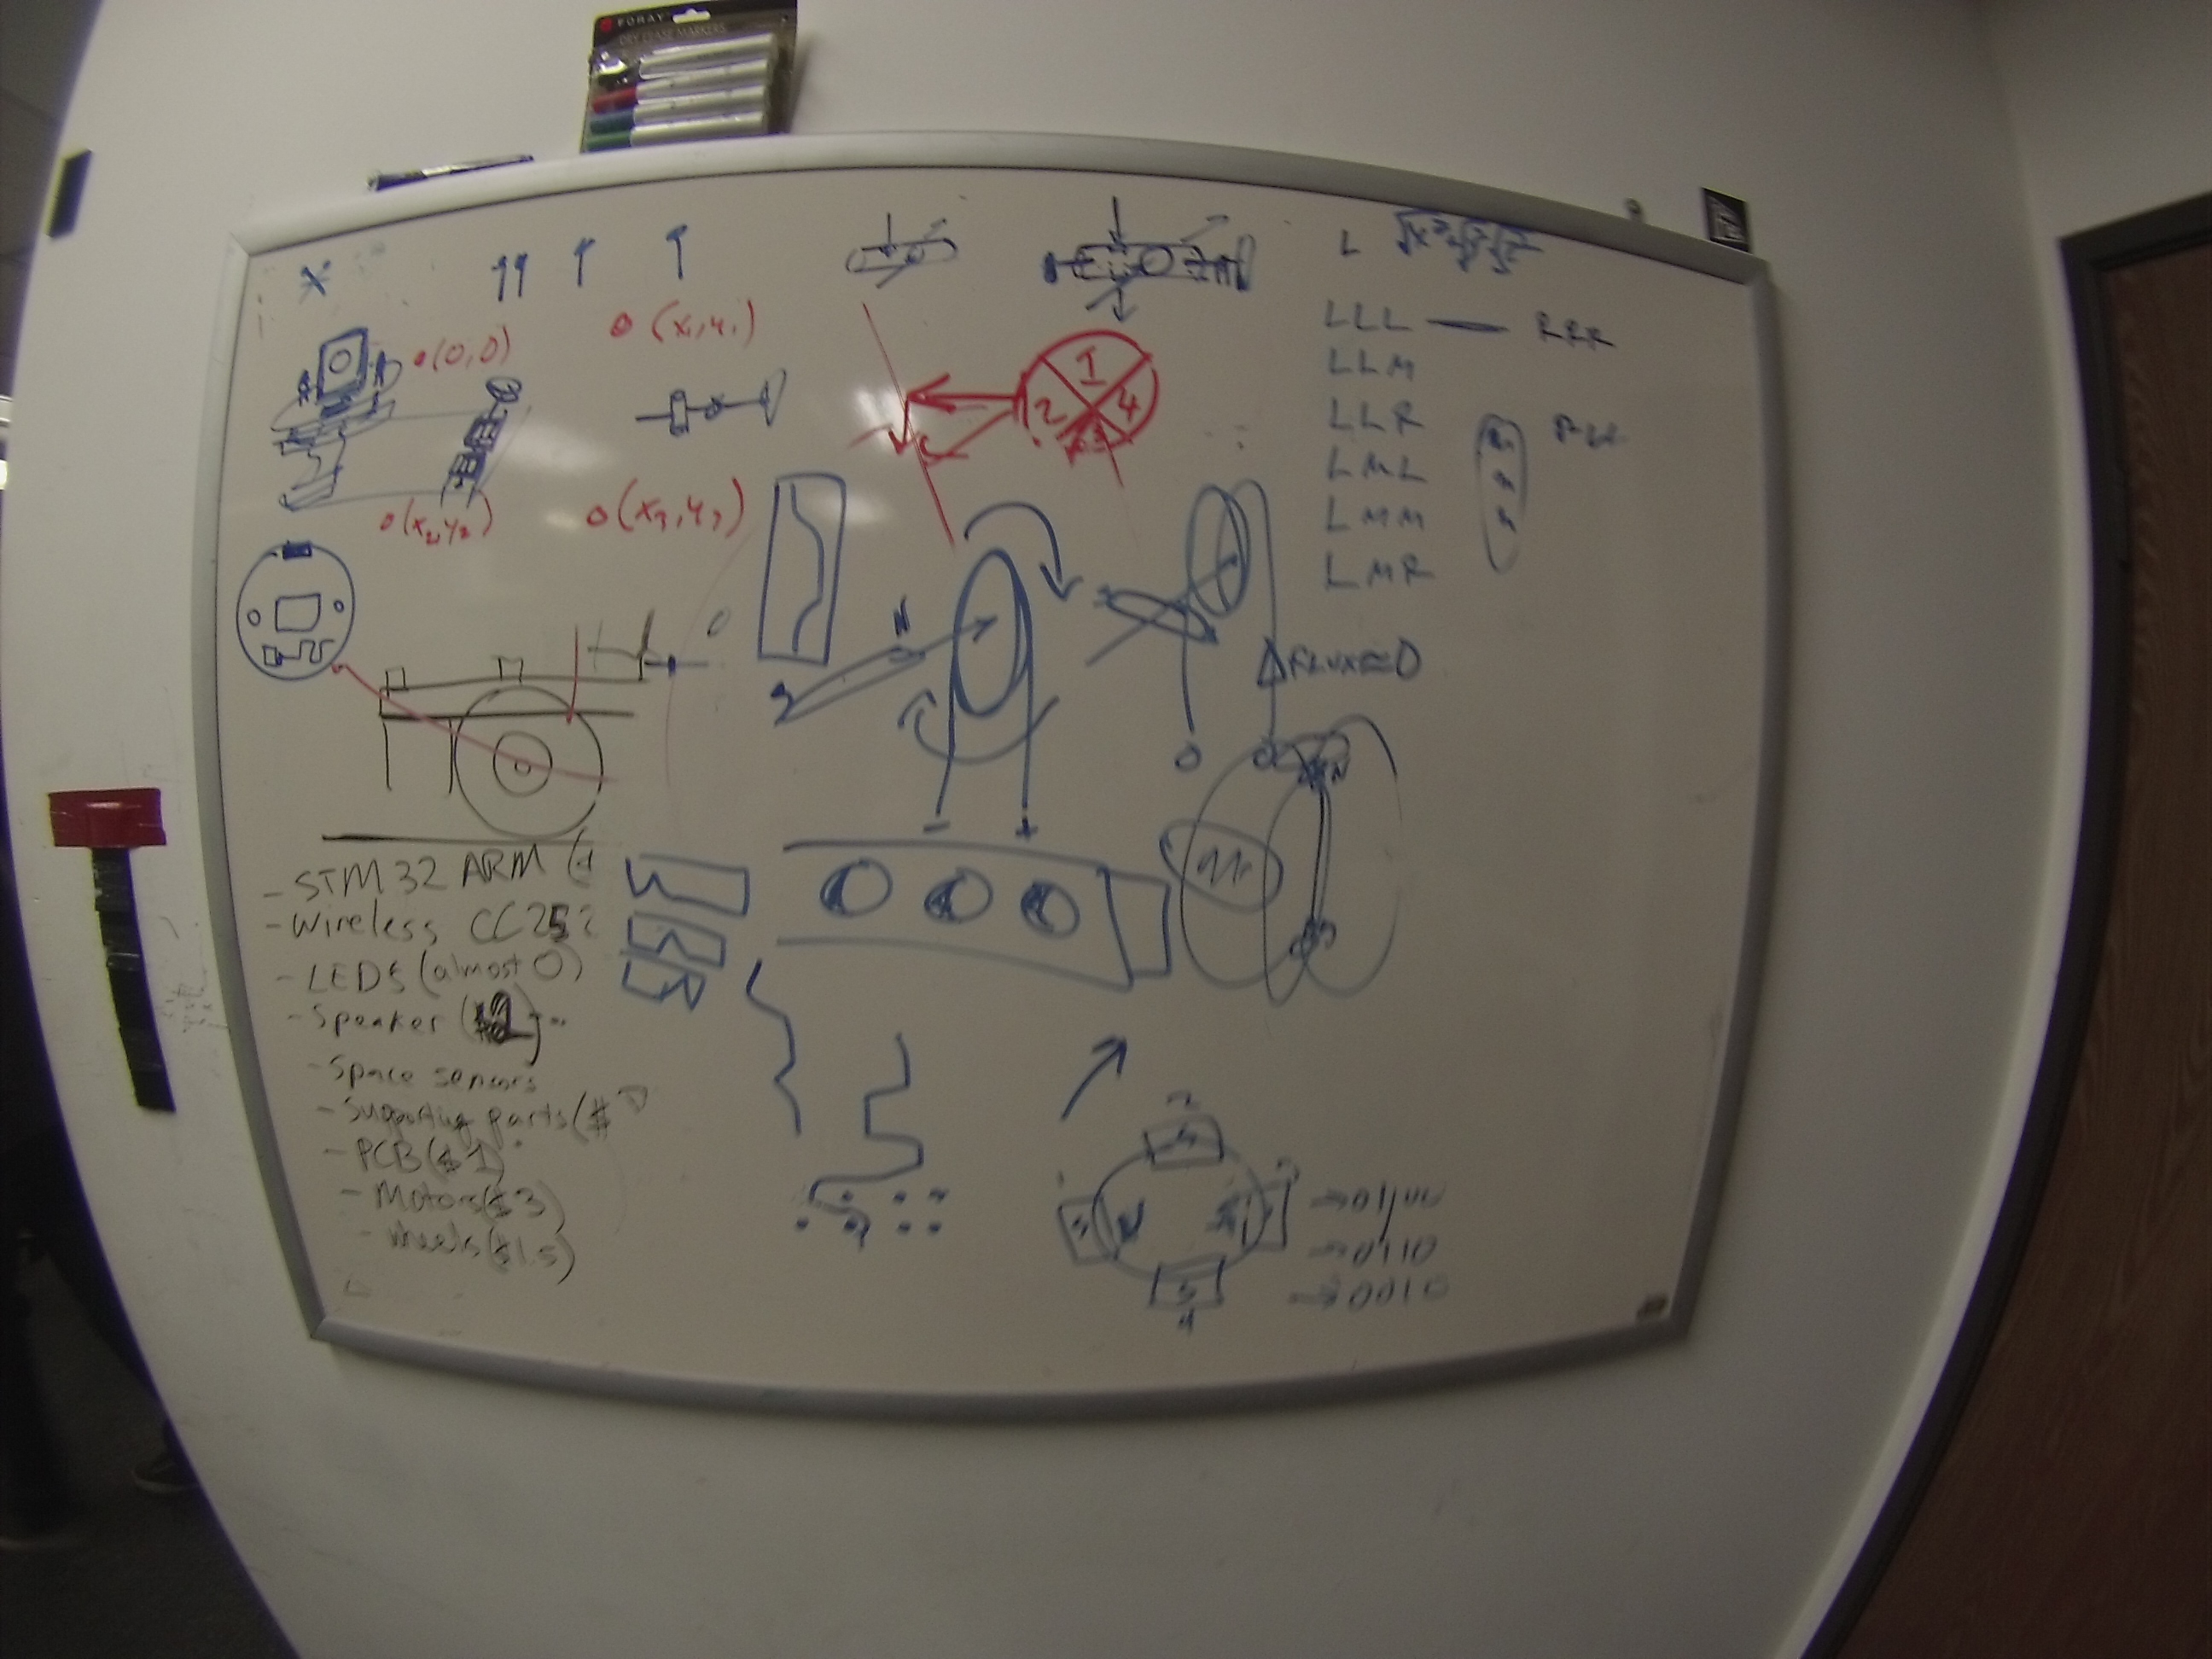 FORAY
DRY ERASE MARKERS
X
L
(0,0)
(x₁,y₁)
1
2
4
3
LLL — RRR
LLM
LLR
LML
LMM
LMR
(x₂,y₂)
N
ΔFLUX=0
- +
N
- STM32 ARM
- Wireless CC252
- LEDS (almost 0)
- Speaker
- Space sensors
- Supporting parts ($
- PCB ($1)
- Motors ($3)
- wheels ($1.5)
N
4
→ 0110
→ 0010